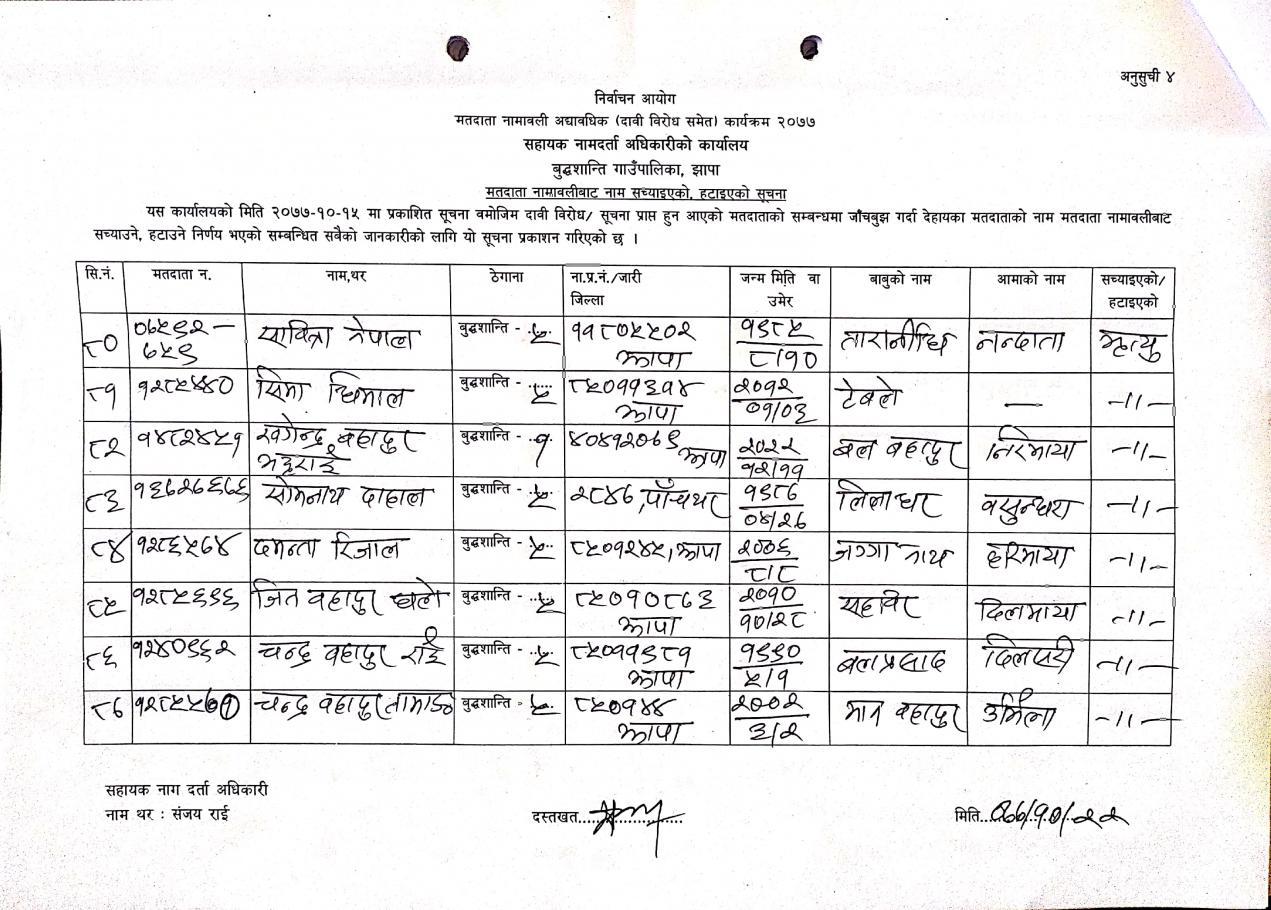 अनुसुची ४
निर्वाचन आयोग
मतदाता नामावली अद्यावधिक (दावी विरोध समेत) कार्यक्रम २०७७
सहायक नामदर्ता अधिकारीको कार्यालय
बुद्धशान्ति गाउँपालिका, झापा
मतदाता नामावलीबाट नाम सच्याइएको, हटाइएको सूचना
यस कार्यालयको मिति २०७७-१०-१५ मा प्रकाशित सूचना बमोजिम दावी विरोध/ सूचना प्राप्त हुन आएको मतदाताको सम्बन्धमा जाँचबुझ गर्दा देहायका मतदाताको नाम मतदाता नामावलीबाट
सच्याउने, हटाउने निर्णय भएको सम्बन्धित सबैको जानकारीको लागि यो सूचना प्रकाशन गरिएको छ ।
सि.नं. मतदाता न. नाम,थर ठेगाना ना.प्र.नं./जारी जिल्ला जन्म मिति वा उमेर बाबुको नाम आमाको नाम सच्याइएको/ हटाइएको
८० ०७५९२–७५९ सावित्रा नेपाल बुद्धशान्ति - ५ ११८०५५०२ झापा १९८५ ८/१० तारानीधि नन्दाता मृत्यु
८१ १२८५४४० सिमा धिमाल बुद्धशान्ति - ५ ८५०११३१४ झापा २०१२ ०१/०३ टेबले — -〃-
८२ १४८२४५१ खगेन्द्र बहादुर भट्टराई बुद्धशान्ति - १ ४०४१२०६९ झापा २०२२ १२/११ बल बहादुर निरमाया -〃-
८३ १३७२७६७६ सोमनाथ दाहाल बुद्धशान्ति - ५ २८४७, पाँचथर १९८७ ०४/२७ लिलाधर वसुन्धरा -〃-
८४ १२८६५७४ दमन्ता रिजाल बुद्धशान्ति - ५ ८५०१२४५, झापा २००६ ८/८ जग्गा नाथ हरिमाया -〃-
८५ १२८५६६६ जित बहादुर बुद्धशान्ति - ५ ८५०१०८७३ झापा २०१० १०/२८ सहविर दिलमाया -〃-
८६ १२४०९६२ चन्द्र बहादुर राई बुद्धशान्ति - ५ ८५०११९८१ झापा १९९० ५/१ बलप्रसाद दिलसरी -〃-
८७ १२८५५७१ चन्द्र बहादुर तामाङ बुद्धशान्ति - ५ ८५०१४४ झापा २००२ ३/२ मान बहादुर उर्मिला -〃-
सहायक नाग दर्ता अधिकारी
नाम थर : संजय राई दस्तखत मिति..०७७/१०/२२